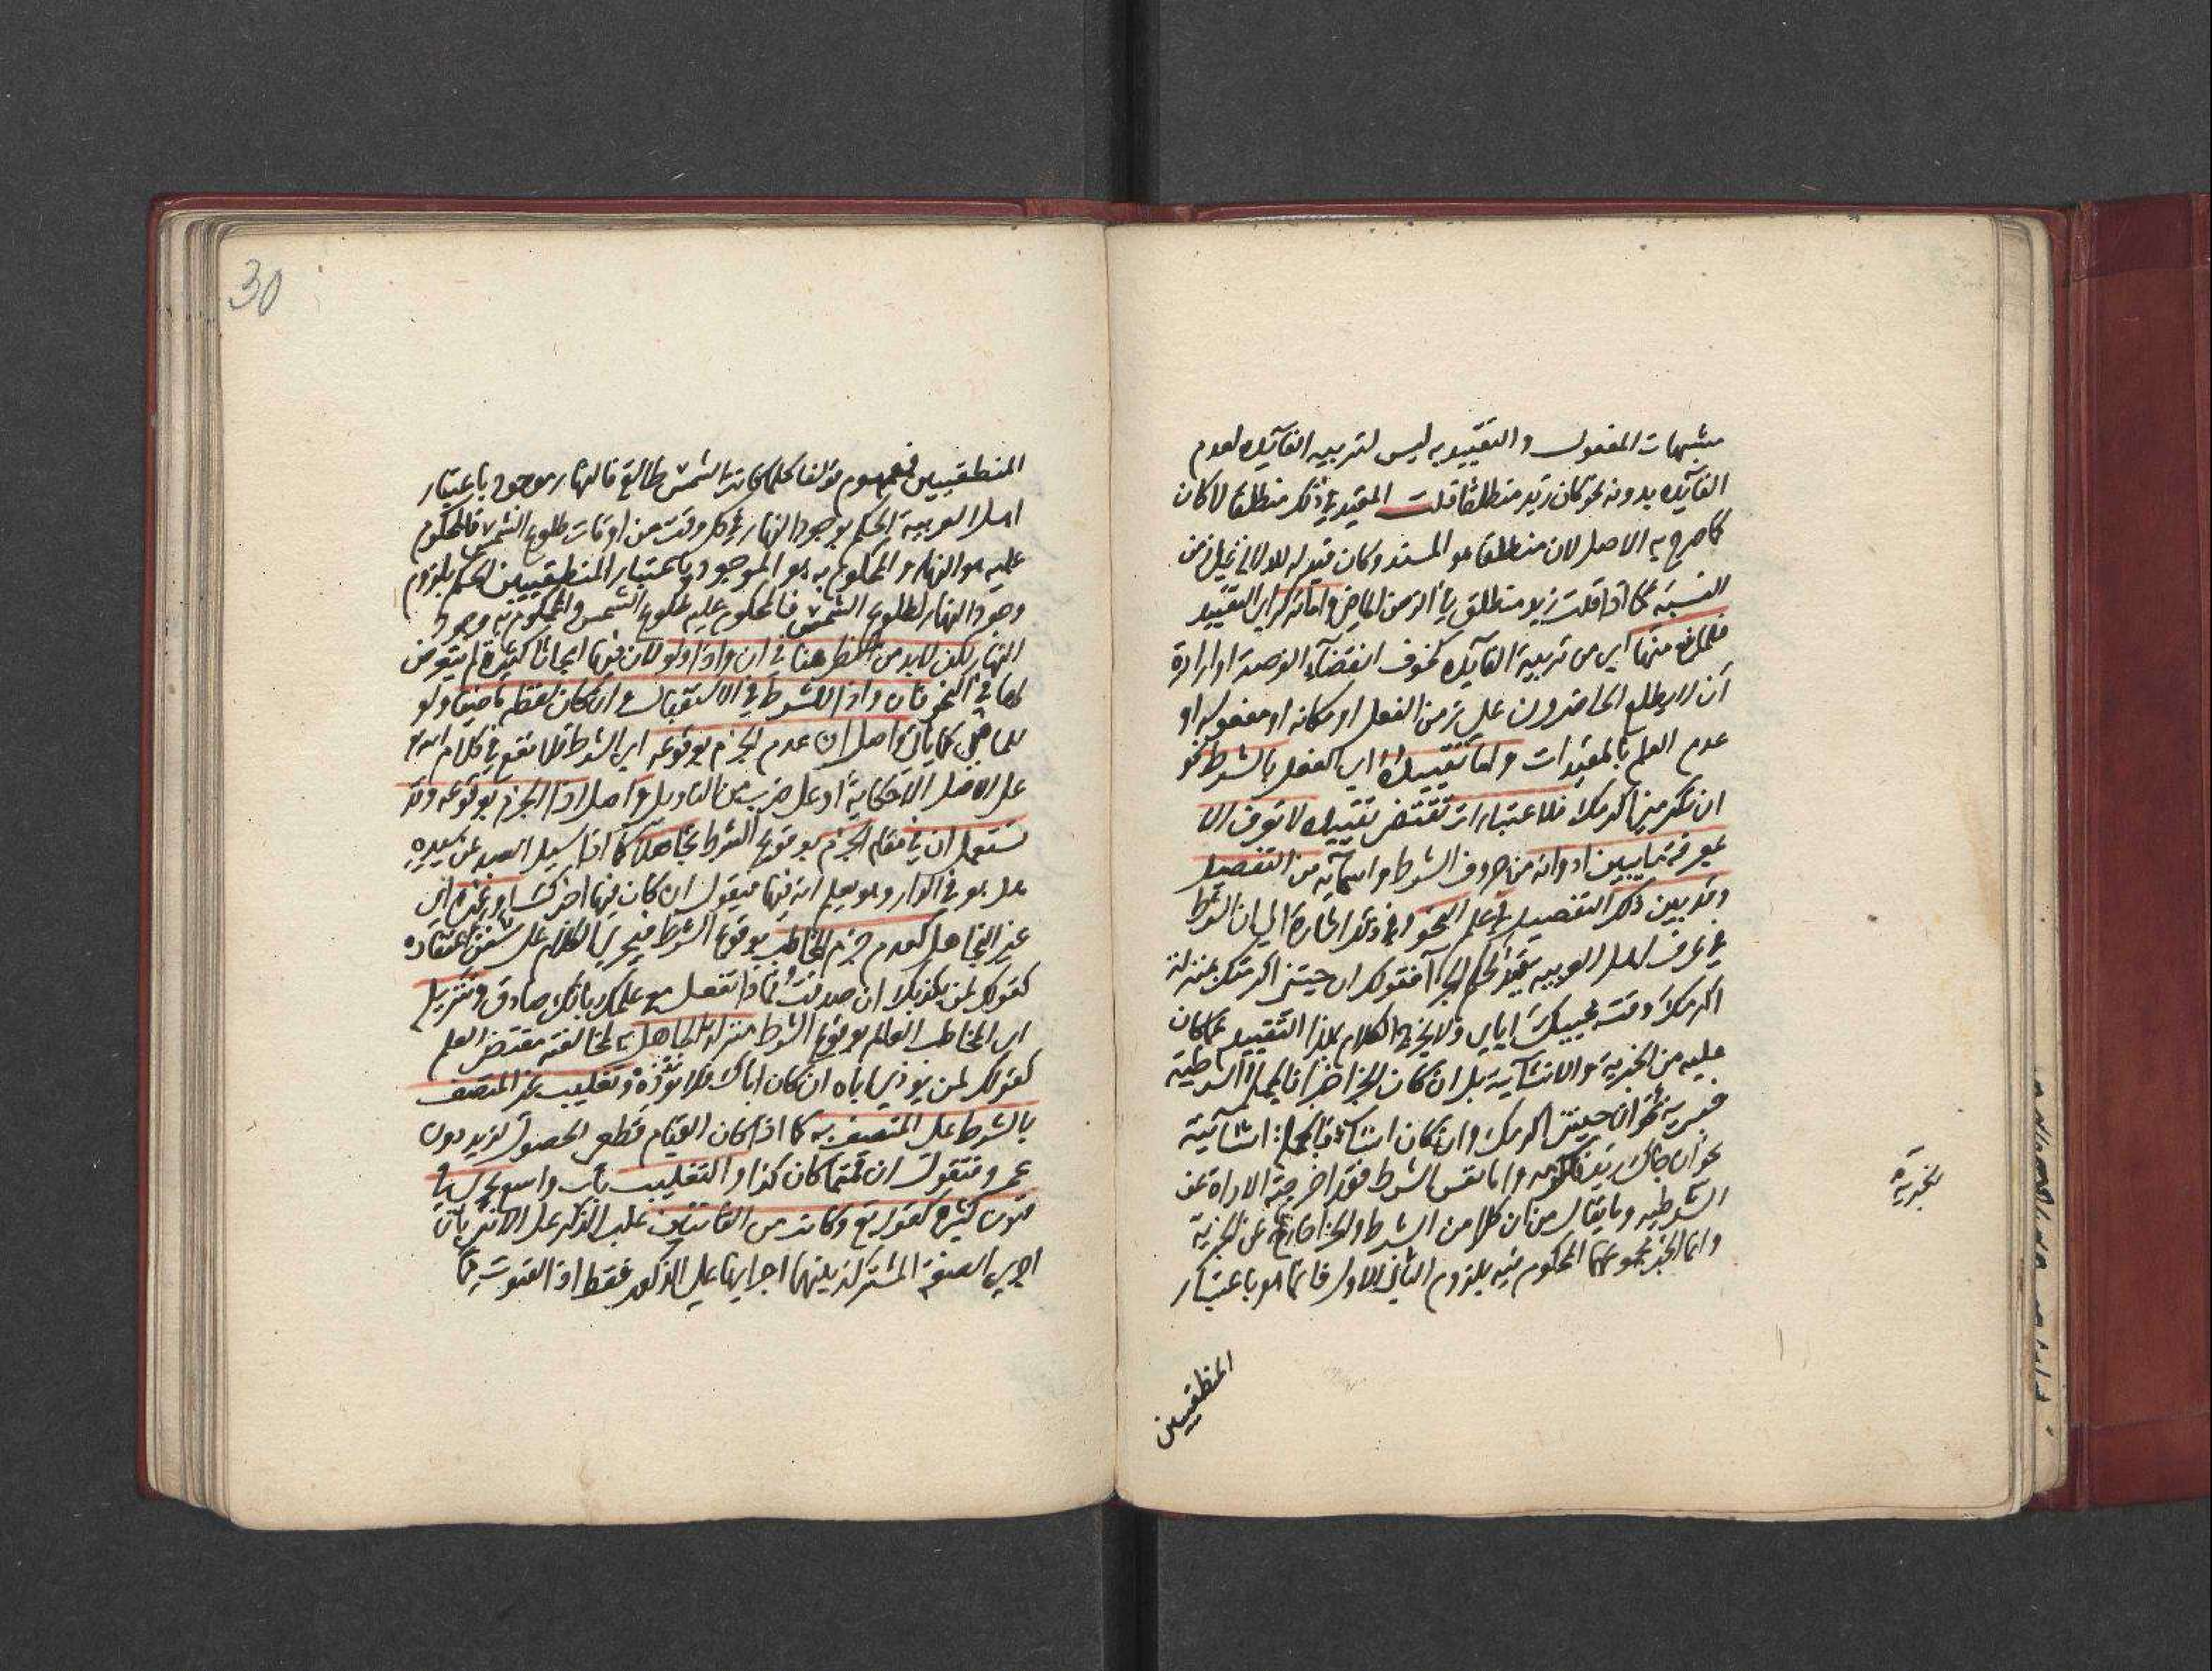 مشبهات المفعول والتقييد به ليس لتربية الفآئدة لعدم
الفآئدة بدونه نحو كان زيد منطلقا قلت المقيد في ذلك منطلقا لا كان
كما صرح به الاصل لان منطلقا هو المسند وكان قيد له للدلالة على زمن
النسبة كما اذا قلت زيد منطلق في الزمن الماضي واما تركه اي التقييد
فلمانع منها اي من تربية الفآئدة كخوف انقضآء الفرصة او ارادة
ان لا يطلع الحاضرون على زمن الفعل او مكانه او مفعوله او
عدم العلم بالمقيدات واما تقييده اي الفعل بالشرط نحو
ان تكرمني اكرمك فلاعتبارات تقتضي تقييده لا تعرف الا
بمعرفة ما بين ادواته من حروف الشرط واسمآئه من التفصيل
وقد بين ذلك التفصيل في علم النحو وفي هذا اشارة الى ان الشرط
في عرف اهل العربية قيد لحكم الجزآ فقولك ان جيتني اكرمتك بمنزلة
اكرمك وقت مجيئك اياي ولا يخرج الكلام بهذا التقييد عما كان
عليه من الخبرية والانشآئية بل ان كان الجزا خبرا فالجملة الشرطية
خبرية نحو ان جيتني اكرمك وان كان انشآء فالجملة انشآئية
نحو ان جاك زيد فاكرمه واما نفس الشرط فقد اخرجته الاداة عن
الشرطية وما يقال من ان كلا من الشرط والجزا خارج عن الخبرية
وانما الخبر مجموعهما المحكوم فيه بلزوم الثاني للاول فانما هو باعتبار
الخبرية
المنطقيين
30
المنطقيين فمفهوم قولنا كلما كانت الشمس طالعة فالنهار موجود باعتبار
اهل العربية الحكم بوجود النهار في كل وقت من اوقات طلوع الشمس فالمحكوم
عليه هو النهار والمحكوم به هو الموجود وباعتبار المنطقيين الحكم بلزوم
وجود النهار لطلوع الشمس فالمحكوم عليه طلوع الشمس والمحكوم به وجود
النهار لكن لابد من النظر هنا في ان واذا ولو لان فيها ابحاثا كثيرة لم يتعرض
لها في النحو فان واذا للشرط في الاستقبال وان كان لفظه ماضيا ولو
للماضي كما ياتي واصل ان عدم الجزم بوقوعه اي الشرط فلا يقع في كلام الله تع
على الاصل الا حكاية او على ضرب من التاويل واصل اذا الجزم بوقوعه وقد
تستعمل ان في مقام الجزم بوقوع الشرط تجاهلا كما اذا سيل العبد عن سيده
هل هو في الدار وهو يعلم انه فيها فيقول ان كان فيها اخبرك او
غير التجاهل كعدم جزم المخاطب بوقوع الشرط فيجري الكلام على سنن اعتقاده
كقولك لمن يكذبك ان صدقت فماذا تفعل مع علمك بانك صادق وتنزيل
اي المخاطب العالم بوقوع الشرط منزلة الجاهل به لمخالفته مقتضى العلم
كقولك لمن يوذي اباه ان كان اباك فلا توذه وتغليب غير المتصف
بالشرط على المتصف به كما اذا كان القيام قطعي الحصول لزيد دون
عمرو فتقول ان قمتما كان كذا والتغليب باب واسع يجري في
فنون كثيرة كقوله تع وكانت من القانتين غلب الذكر على الانثى بان
اجري الصفة المشتركة بينهما اجرايها على الذكور فقط اذ القنوت مما